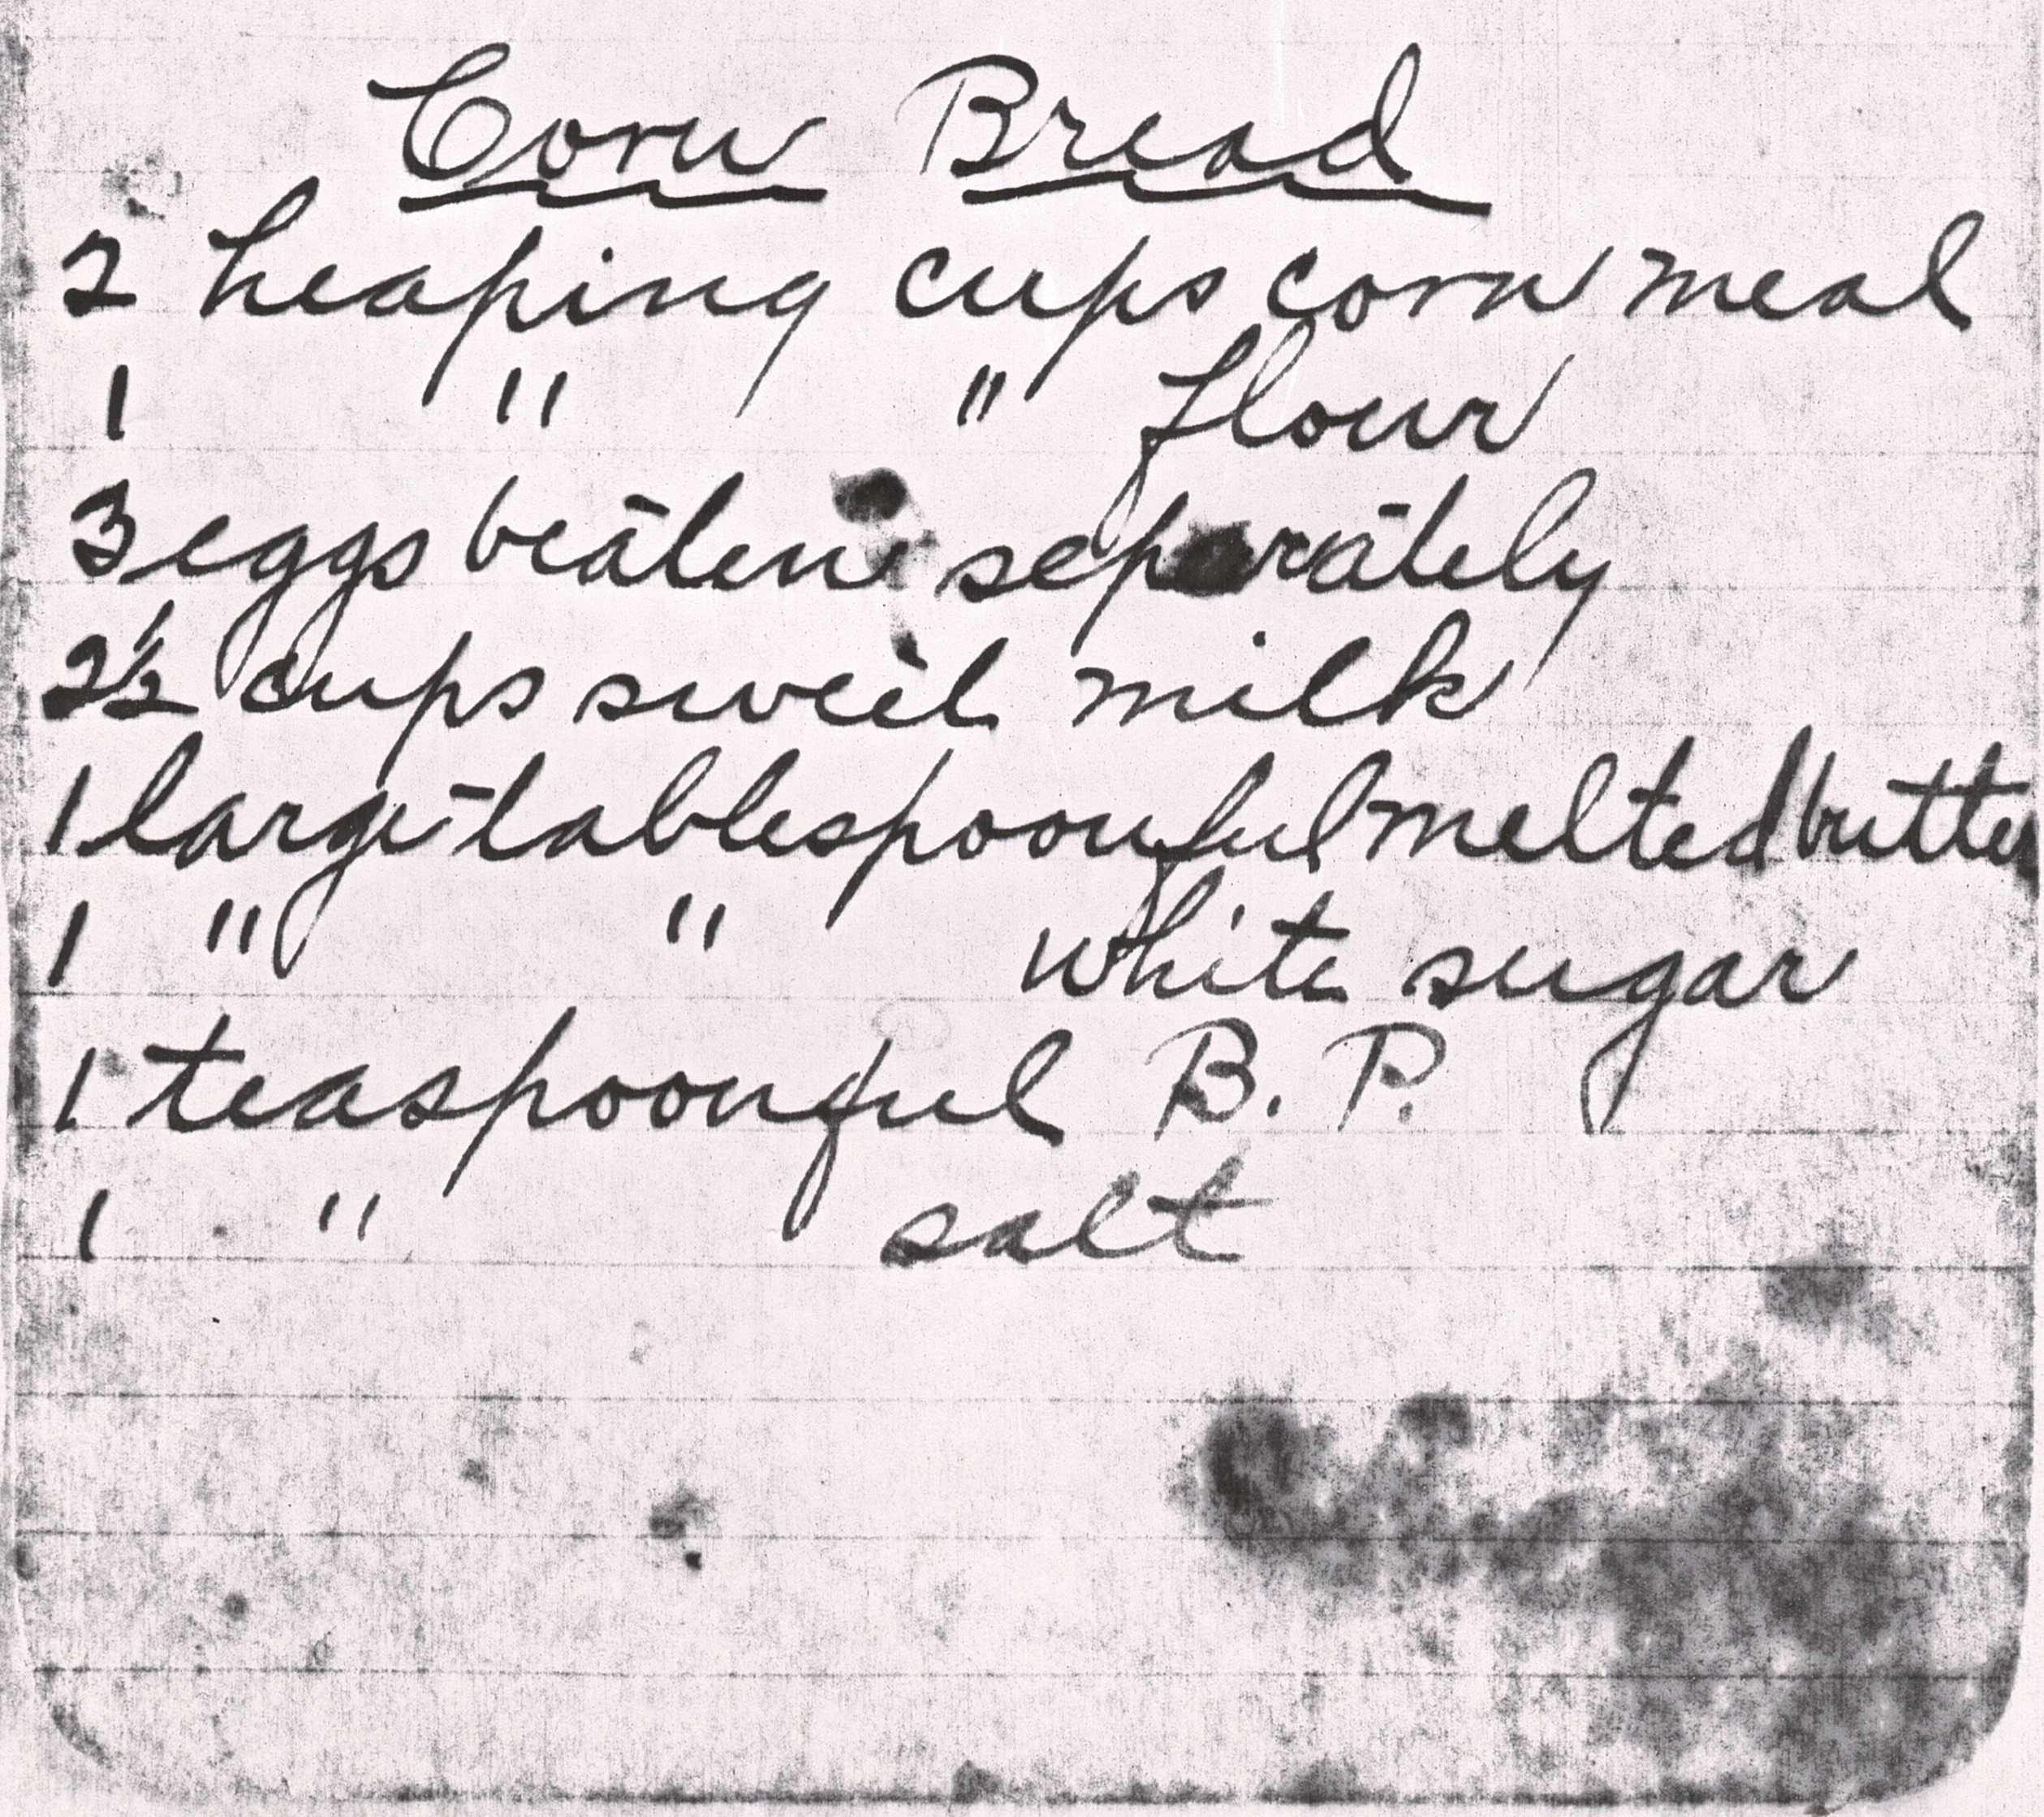 Corn Bread
2 heaping cups corn meal
1 " " flour
3 eggs beaten separately
2½ cups sweet milk
1 large tablespoonful melted butter
1 " " white sugar
1 teaspoonful B. P.
1 " salt